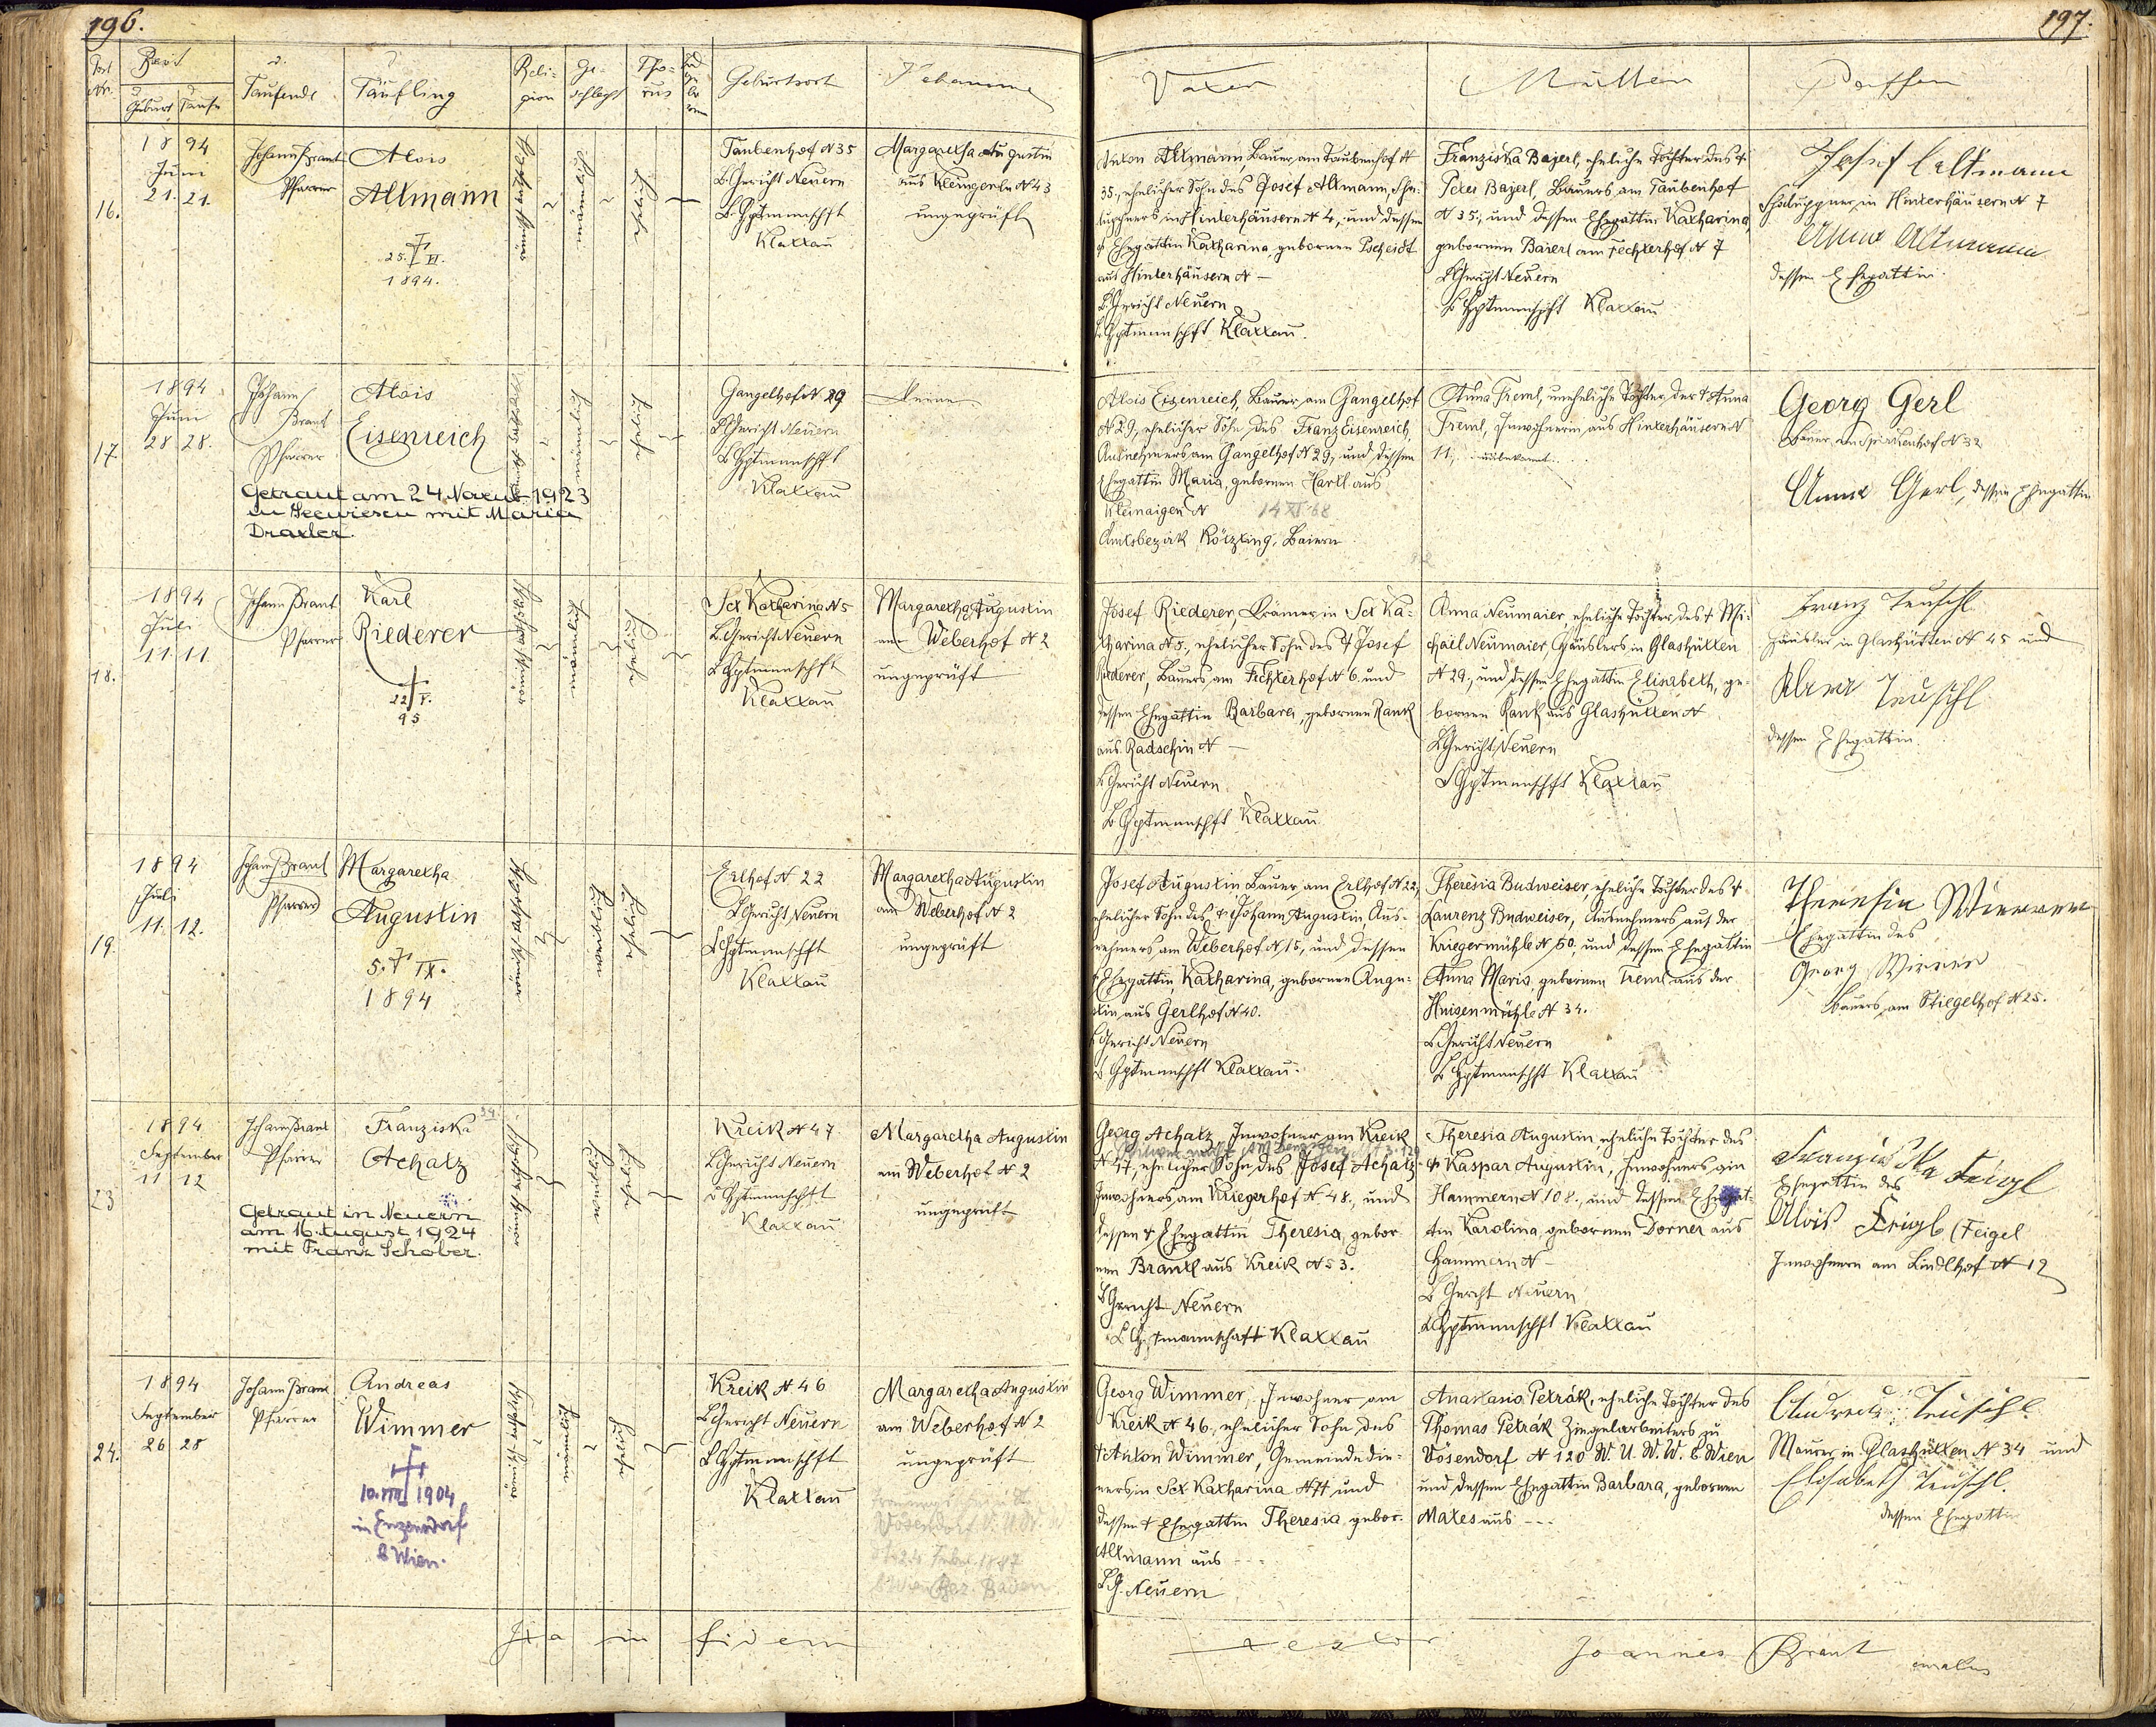 196.
Zeit
Geburt Taufe
Taufende
Täufling
Religion
Geschlecht
Thorus
Geburtsort
Hebamme
16.
1894
Juni
21. 21.
Johann Brant
Pfarrer
Alois
Altmann
†
25. VI.
1894.
männlich
ehelich
Taubenhof N 35
B. Gericht Neuern
B. Hptmannschft
Klattau
Margaretha Augustin
ungeprüft
17.
1894
Juni
28 28.
Johann
Brant
Pfarrer
Alois
Eisenreich
Getraut am 24. Novemb. 1923
in Seewiesen mit Maria
Draxler.
männlich
ehelich
Gangelhof N. 29
B. Gericht Neuern
B. Hptmannschft
Klattau
Keine
18.
1894
Juli
11. 11.
Johann Brant
Pfarrer
Karl
Riederer
†
22/V.
95
männlich
ehelich
Sct Katharina N 5
B. Gericht Neuern
B. Hptmannschft
Klattau
Margaretha Augustin
am Weberhof N 2
ungeprüft
19.
1894
Juli
11. 12.
Johann Brant
Pfarrer
Margaretha
Augustin
5. † IX.
1894
weiblich
ehelich
Erlhof N 22
B. Gericht Neuern
B. Hptmannschft
Klattau
Margaretha Augustin
am Weberhof N 2
ungeprüft
23
1894
September
11 12
Johann Brant
Pfarrer
Franziska
Achatz
Getraut in Neuern
am 16. August 1924
mit Franz Schober.
weiblich
ehelich
Kreik N 47
B. Gericht Neuern
B. Hptmannschft
Klattau
Margaretha Augustin
am Weberhof N 2
ungeprüft
24.
1894
September
26 28
Johann Brant
Pfarrer
Andreas
Wimmer
†
10. VIII 1904
in Enzersdorf
b Wien.
männlich
ehelich
Kreik N. 46
B. Gericht Neuern
B. Hptmannschft
Klattau
Margaretha Augustin
am Weberhof N 2
ungeprüft
Vösendorf
Bez. Baden
Ita in fidem
197.
Vater
Mutter
Pathen
Anton Altmann, Bauer am Taubenhof N
35., ehelicher Sohn des Josef Altmann, Cha-
luppners in Hinterhäusern N 4, und dessen
† Ehegattin Katharina, gebornen Pscheidt
aus Hinterhäusern N –
B. Gericht Neuern
B. Hptmannschft Klattau.
Franziska Bajerl, eheliche Tochter des †
Peter Bajerl, Bauers am Taubenhof
N 35., und dessen Ehegattin Katharina,
gebornen Baierl am Fechterhof N 7
B. Gericht Neuern
B. Hptmannschft Klattau
Josef Altmann
Chaluppner in Hinterhäusern N 7
Anna Altmann
dessen Ehegattin.
Alois Eisenreich, Bauer am Gangelhof
N 29, ehelicher Sohn des Franz Eisenreich,
Ausnehmers am Gangelhof N 29, und dessen
Ehegattin Maria, gebornen Hartl aus
Kleinaigen N 14 XI 68
Amtsbezirk Kötzting, Baiern
Anna Treml, uneheliche Tochter der † Anna
Treml, Inwohnerin aus Hinterhäusern N
11,
Georg Gerl
Bauer am N 32
Anna Gerl, dessen Ehegattin
Josef Riederer, Krämer in Sct Ka-
tharina N 5., ehelicher Sohn des † Josef
Riederer, Bauers am Fechterhof N 6. und
dessen Ehegattin Barbara, gebornen Rank
aus Radschin N –
B. Gericht Neuern.
B. Hptmannschft Klattau.
Anna Neumaier, eheliche Tochter des † Mi-
chael Neumaier, Häuslers in Glashütten
N 29, und dessen Ehegattin Elisabeth, ge-
bornen Rank aus Glashütten N
B. Gericht Neuern
B. Hptmannschft Klattau
Franz Teuschl
Häusler in Glashütten N 45 und
Anna Teuschl
dessen Ehegattin.
Josef Augustin Bauer am Erlhof N 22,
ehelicher Sohn des † Johann Augustin Aus-
nehmers am Weberhof N 15, und dessen
Ehegattin Katharina, gebornen Augu-
stin aus Gerlhof N 40.
B. Gericht Neuern
B. Hptmannschft Klattau.
Theresia Budweiser, eheliche Tochter des †
Laurenz Budweiser, Ausnehmers auf der
Kriegermühle N 50, und dessen Ehegattin
Anna Maria, gebornen Treml aus der
Huisenmühle N 34.
B. Gericht Neuern
B. Hptmannschft Klattau
Theresia
Ehegattin des
Georg
Bauers am Stiegelhof N 25.
Georg Achatz, Inwohner am Kreik
N 47, ehelicher Sohn des Josef Achatz
Inwohners am Kriegerhof N 48., und
dessen † Ehegattin Theresia, gebor-
nen Brantl aus Kreik N 53.
B. Gericht Neuern
B. Hptmannschaft Klattau
Theresia Augustin, eheliche Tochter des
† Kaspar Augustin, Inwohners am
Hammern N 108., und dessen Ehegat-
tin Karolina, gebornen Dorner aus
Hammern N –
B. Gericht Neuern
B. Hptmannschft Klattau
Franziska Feigl
Ehegattin des
Alois Feigl (Feigel
Inwohners am Lindlhof N 12
Georg Wimmer, Inwohner am
Kreik N 46, ehelicher Sohn des
† Anton Wimmer, Gemeindedie-
ners in Sct Katharina N 11 und
dessen † Ehegattin Theresia, gebor.
Altmann aus – –
B. G. Neuern
Anastasia Petrák, eheliche Tochter des
Thomas Petrák Ziegelarbeiters zu
Vösendorf N 120 W. U. W. W. b Wien
und dessen Ehegattin Barbara, gebornen
Mares aus – – –
Andreas Teuschl.
Maurer in Glashütten N 34 und
Elisabeth Teuschl.
dessen Ehegattin
testor
Joannes Brant